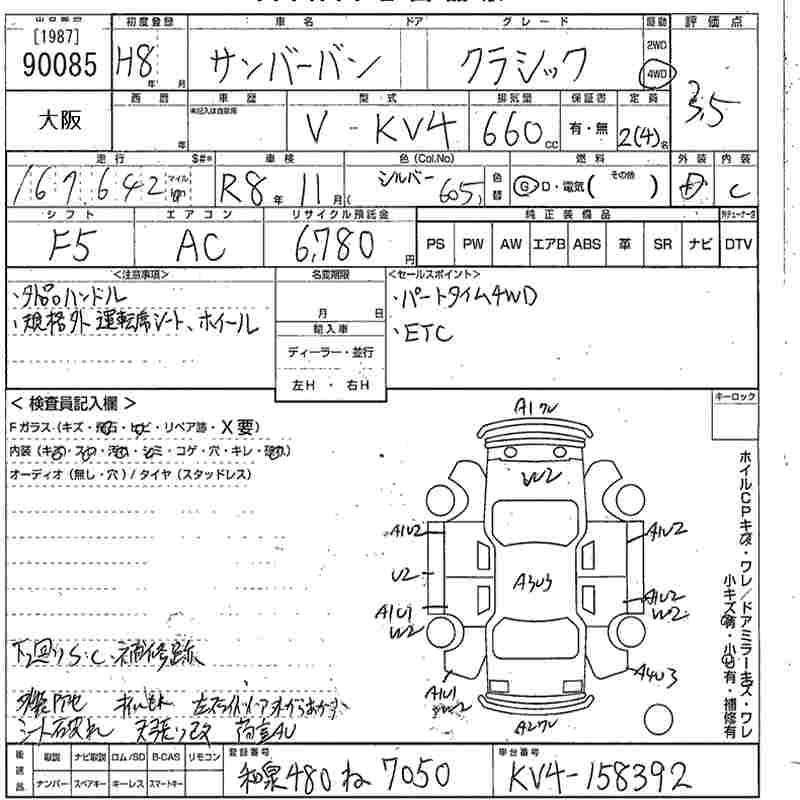 [1987]
90085
初度登録
H8年 月
車名
サンバーバン
ドア
グレード
クラシック
駆動
2WD
4WD
評価点
3.5
大阪
西暦
車歴
未記入は自家用
型式
V-KV4
排気量
660cc
保証書
有・無
定員
2(4)名
走行
167,642
マイル
km
S#*
車検
R8年 11月(
色(Col.No)
シルバー 605
色替
燃料
G・D・電気(その他 )
外装
D
内装
C
シフト
F5
エアコン
AC
リサイクル預託金
6,780円
純正装備品
PS PW AW エアB ABS 革 SR ナビ
DTV
<注意事項>
・外品ハンドル
・規格外 運転席シート、ホイール
名変期限
月 日
輸入車
ディーラー・並行
左H ・ 右H
<セールスポイント>
・パートタイム4WD
・ETC
<検査員記入欄>
Fガラス(キズ・飛石・ヒビ・リペア跡・X要)
内装(キズ・スレ・汚れ・シミ・コゲ・穴・キレ・破れ)
オーディオ(無し・穴)/タイヤ(スタッドレス)
キーロック
A1ワレ
W2
A1U2
A1U2
U2
A3U3
A1U1
W2
A1U2
W2
A1U1
A4U3
A2ワレ
ホイルCPキズ・ワレ/ドアミラーキズ・ワレ
小キズ有・小凹有・補修有
下廻りS・C 補修跡
シート破れ 天張り改 荷室AU
後送品
取説 ナビ取説 ロム/SD B-CAS リモコン
ナンバー スペアキー キーレス スマートキー
登録番号
和泉480ね7050
車台番号
KV4-158392